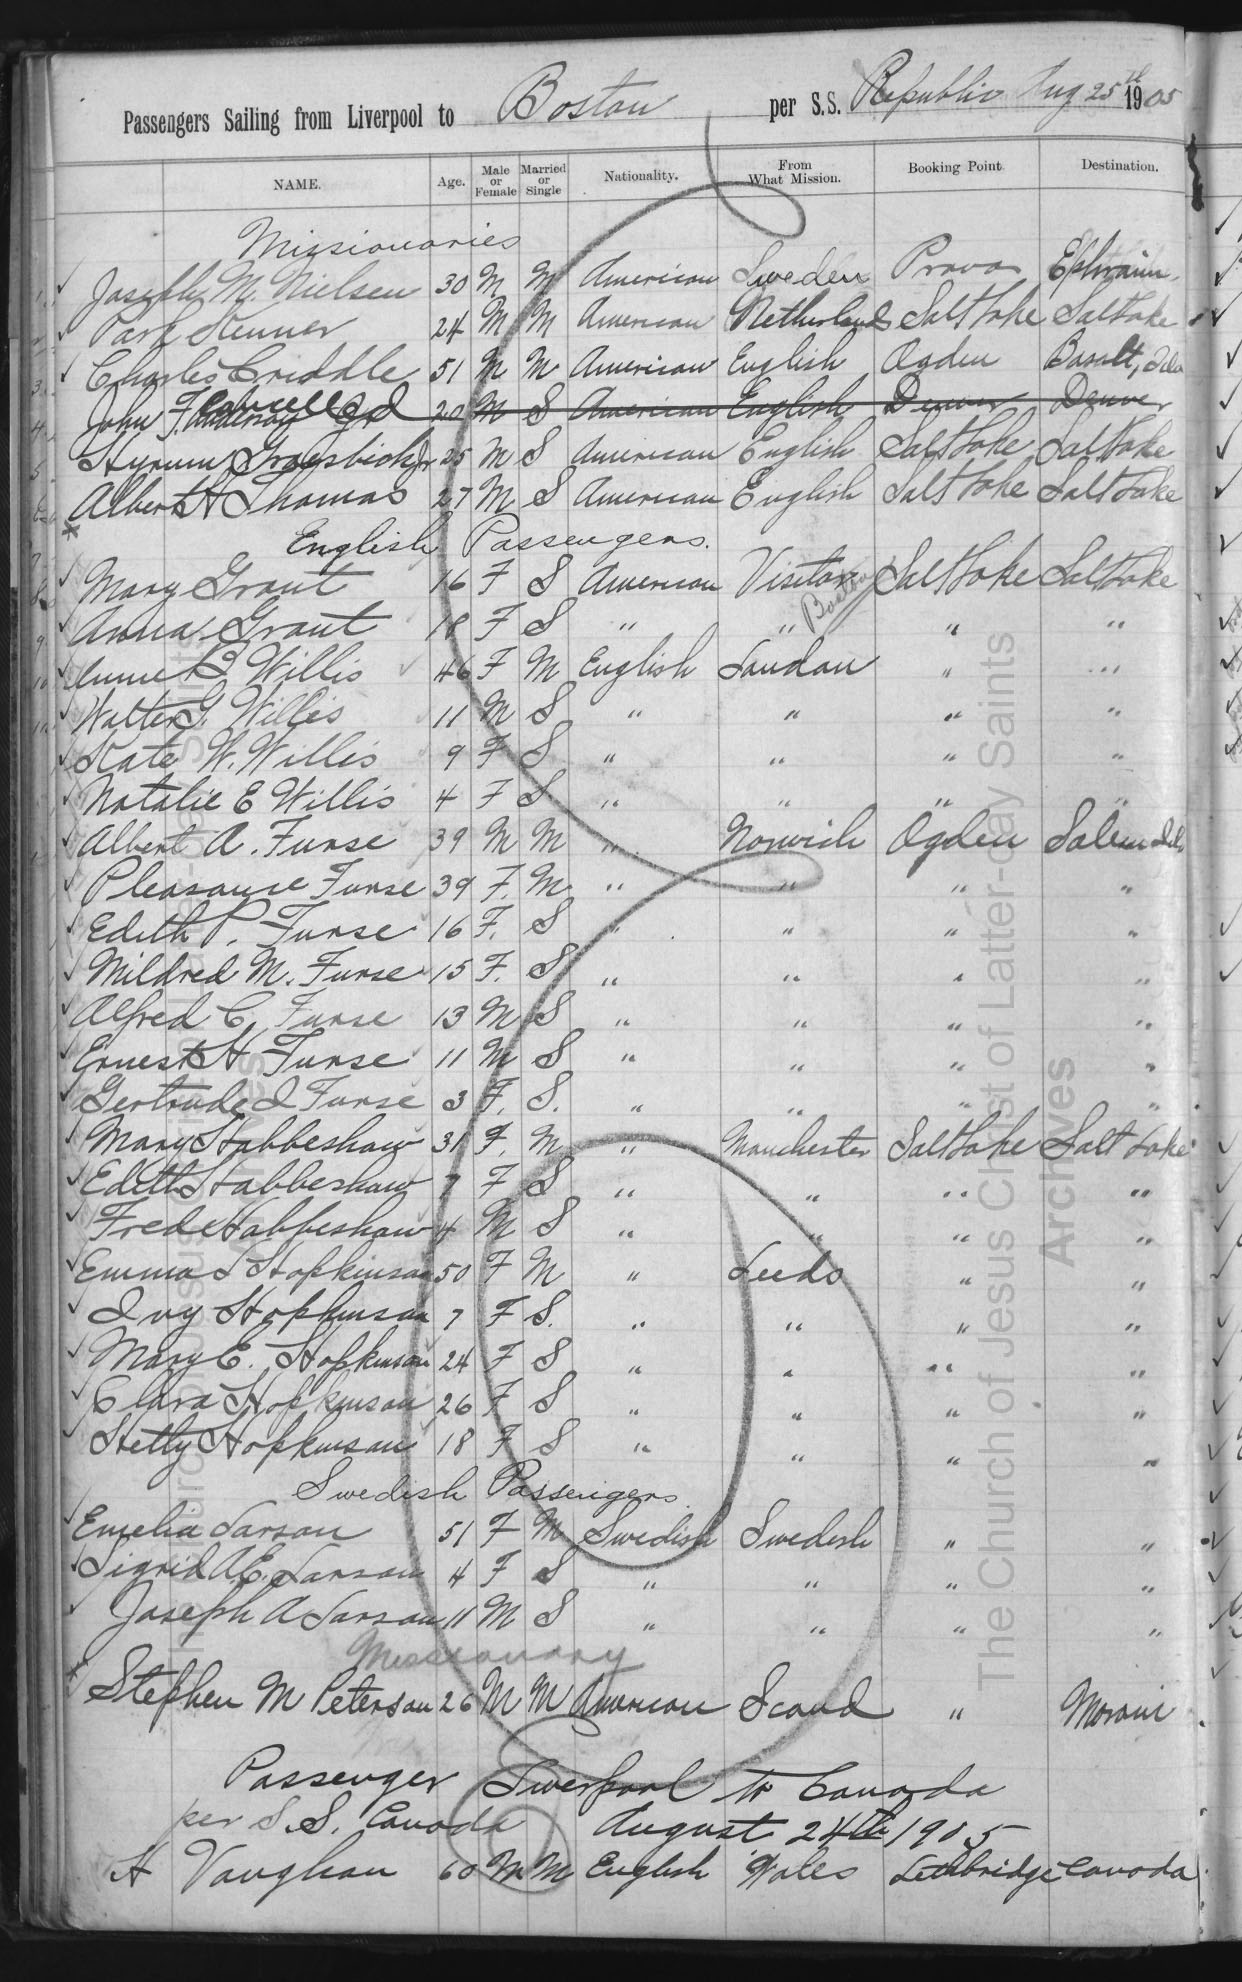 Passengers Sailing from Liverpool to Boston per S.S. Republic Aug 25th 1905
NAME. Age. Male or Female Married or Single Nationality. From What Mission. Booking Point. Destination.
Missionaries
Joseph M. Nielsen 30 M M American Sweden Provo Ephraim
Park Kenner 24 M M American Netherlands Salt Lake Salt Lake
Charles Criddle 51 M M American English Ogden Basalt, Ida
John F. Cancelled 20 M S American English Denver Denver
Hyrum Groesbick Jr 25 M S American English Salt Lake Salt Lake
Albert H Thomas 27 M S American English Salt Lake Salt Lake
English Passengers.
Mary Grant 16 F S American Visitor Salt Lake Salt Lake
Boston
Anna Grant 18 F S " " " "
Anne B. Willis 46 F M English London " "
Walter G. Willis 11 M S " " " "
Kate W. Willis 9 F S " " " "
Natalie E Willis 4 F S " " " "
Albert A. Furse 39 M M " Norwich Ogden Salem Ida
Pleasance Furse 39 F. M " " " "
Edith P. Furse 16 F. S " " " "
Mildred M. Furse 15 F. S " " " "
Alfred C. Furse 13 M S " " " "
Ernest H Furse 11 M S " " " "
Gertrude I Furse 3 F. S. " " " "
Mary Habbeshaw 31 F. M " Manchester Salt Lake Salt Lake
Edith Habbeshaw 7 F S " " " "
Fred Habbeshaw 4 M S " " " "
Emma S Hopkinson 50 F M " Leeds " "
Ivy Hopkinson 7 F S. " " " "
Mary E. Hopkinson 24 F S " " " "
Clara Hopkinson 26 F S " " " "
Hetty Hopkinson 18 F S " " " "
Swedish Passengers
Emelia Larson 51 F M Swedish Swedish " "
Sigrid A.E. Larson 4 F S " " " "
Joseph A Larson 11 M S " " " "
Missionary
Stephen M Peterson 26 M M American Scand " Moroni
Passenger Liverpool to Canada
per S.S. Canada August 24th 1905
H Vaughan 60 M M English Wales Lethbridge Canada
The Church of Jesus Christ of Latter-day Saints
Archives